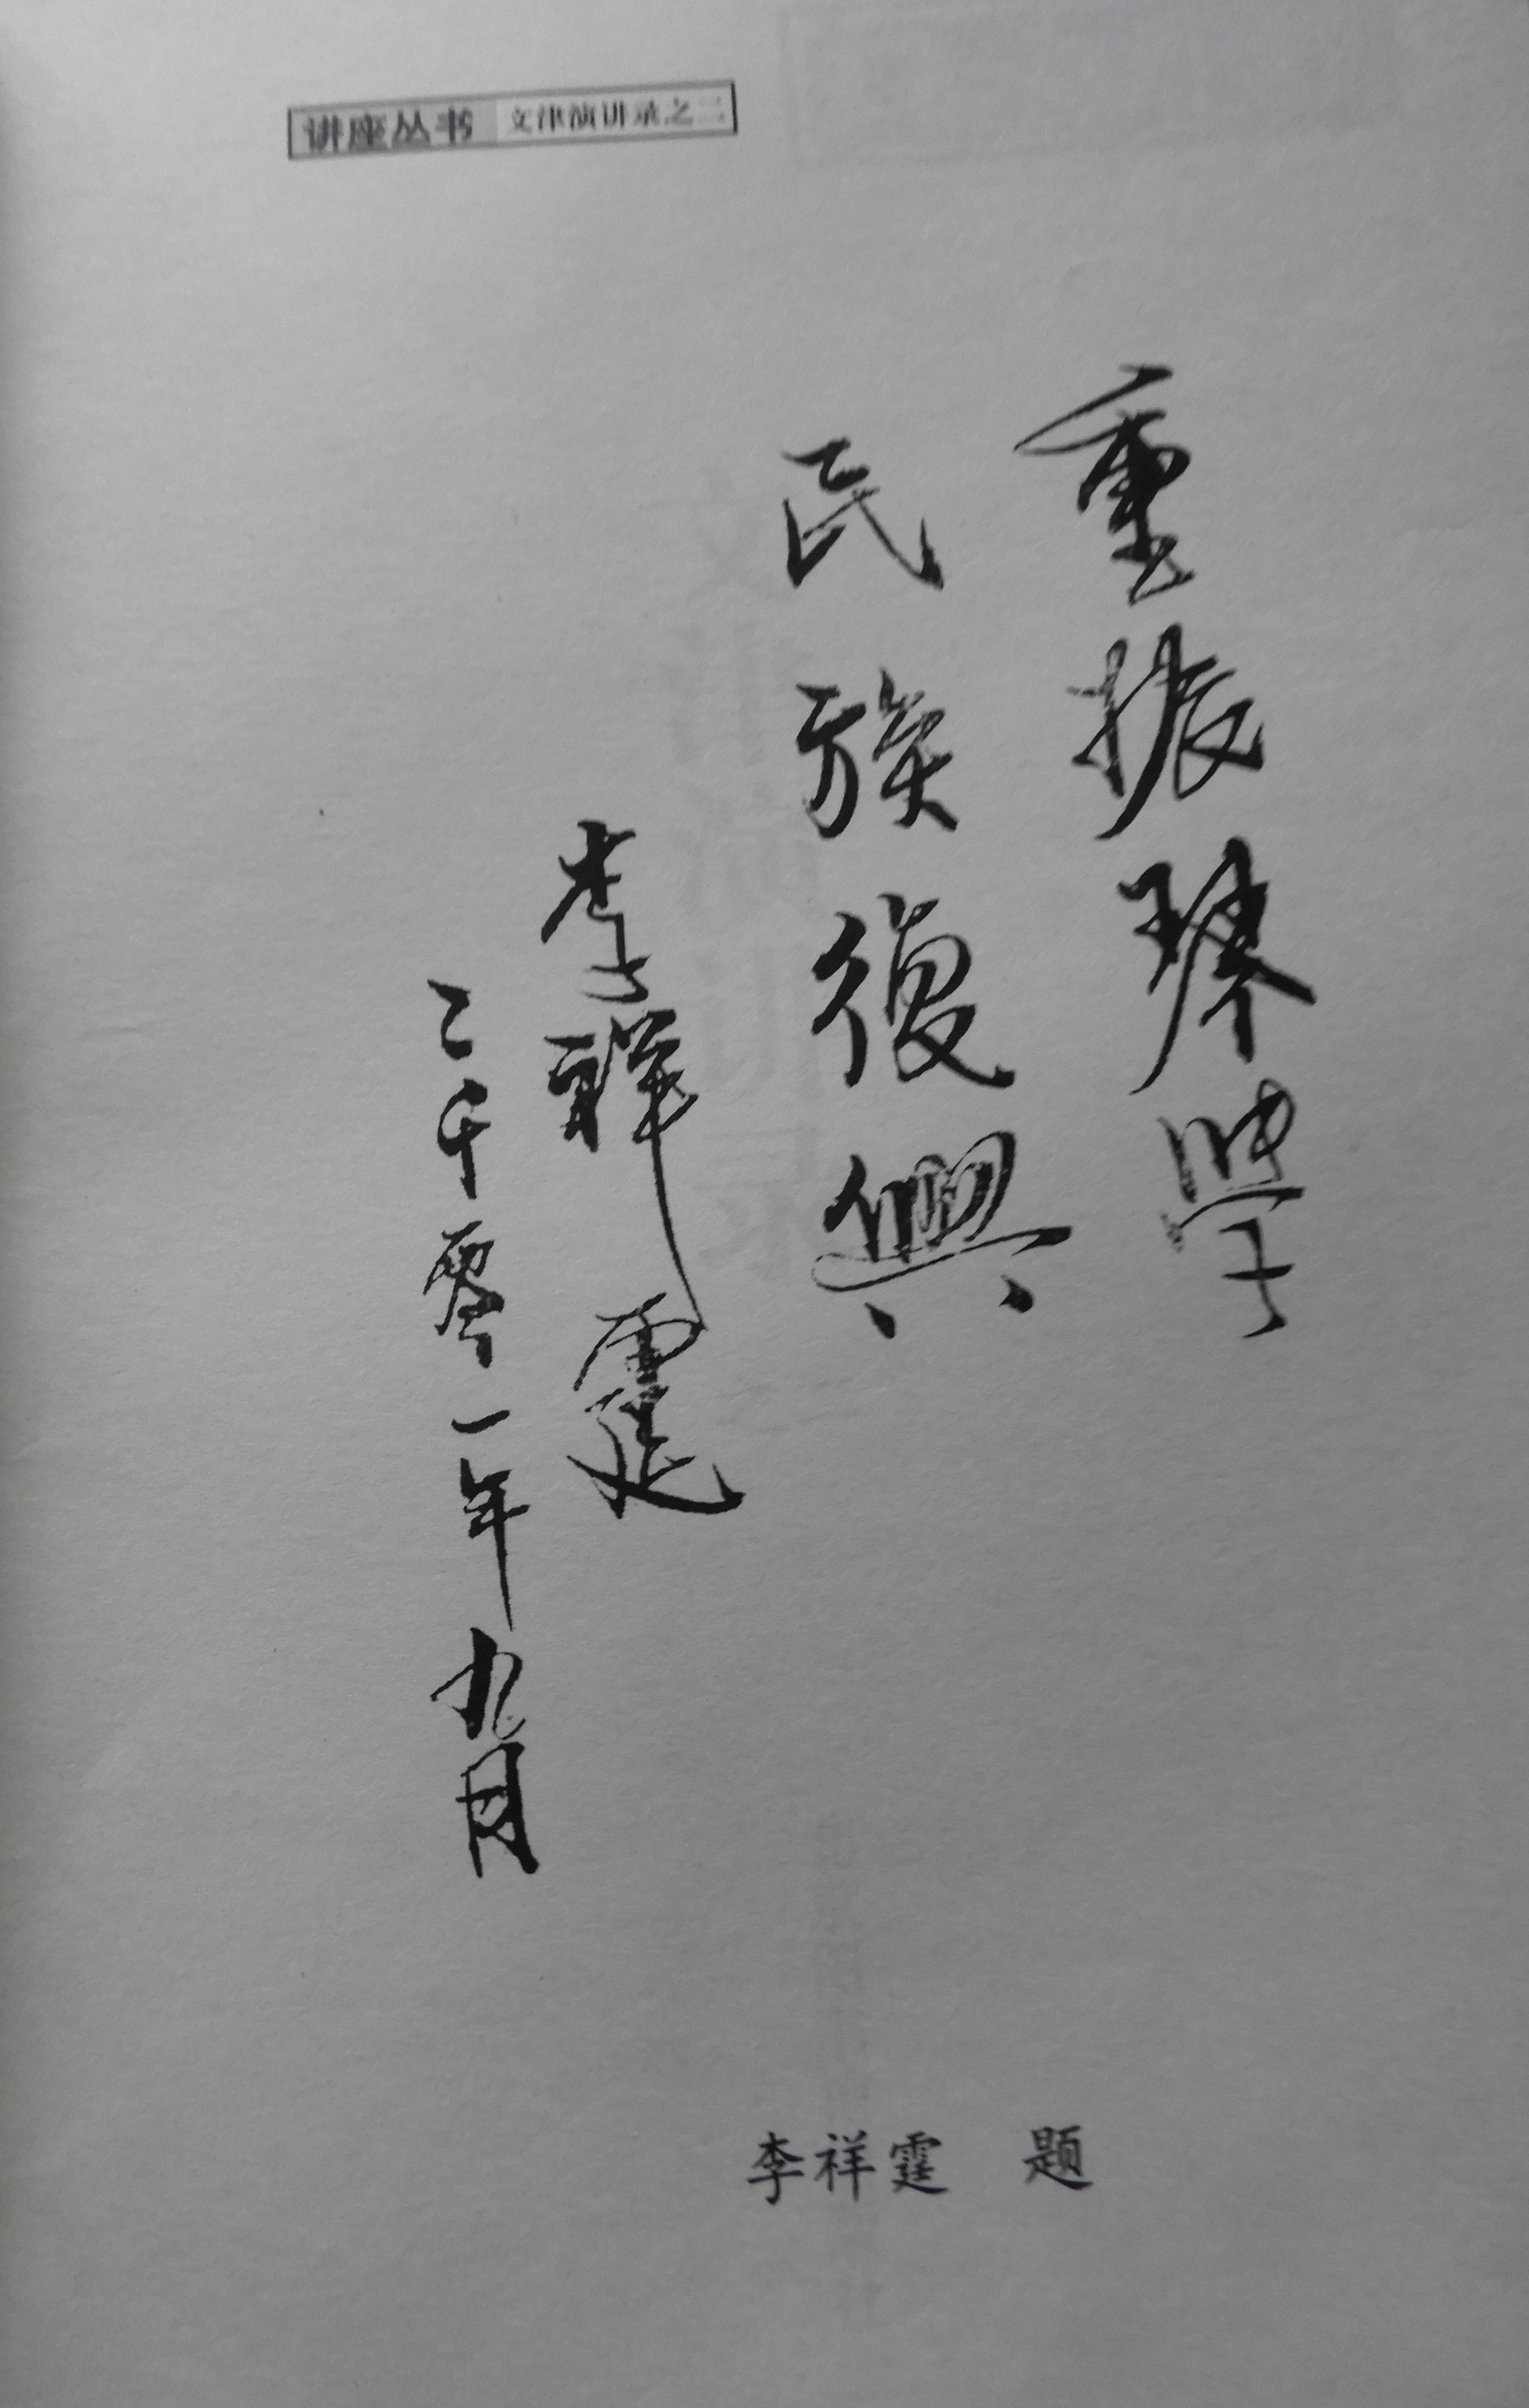 讲座丛书 文津演讲录之二
重振琴學
民族復興
李祥霆
二千零一年九月
李祥霆 题